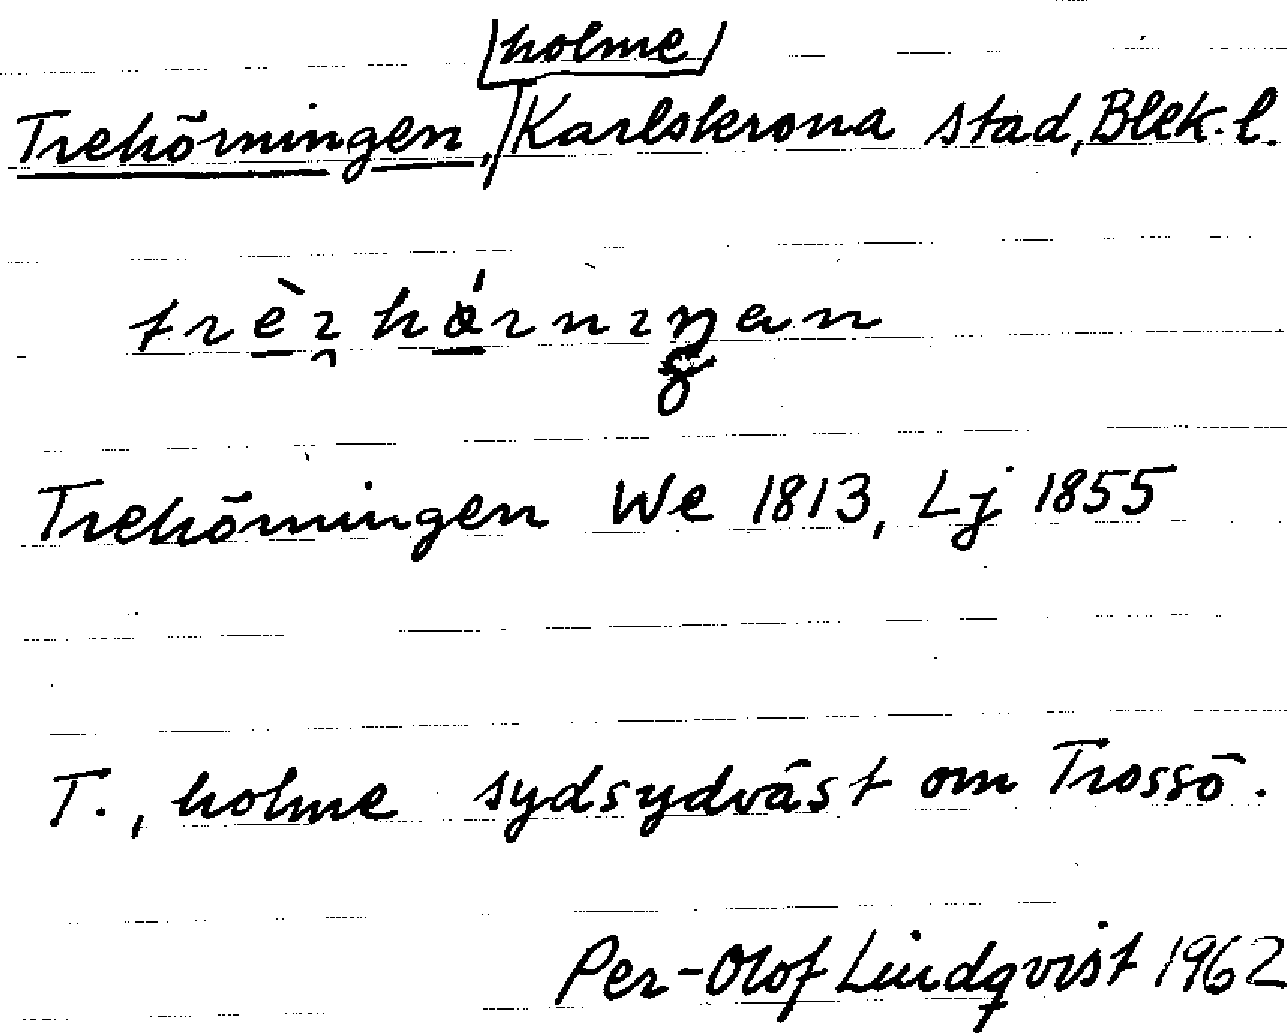 holme
Trehörningen, Karlskrona stad, Blek. l.
Trehörningen We 1813, Lj 1855
T., holme sydsydväst om Trossö.
Per-Olof Lindqvist 1962